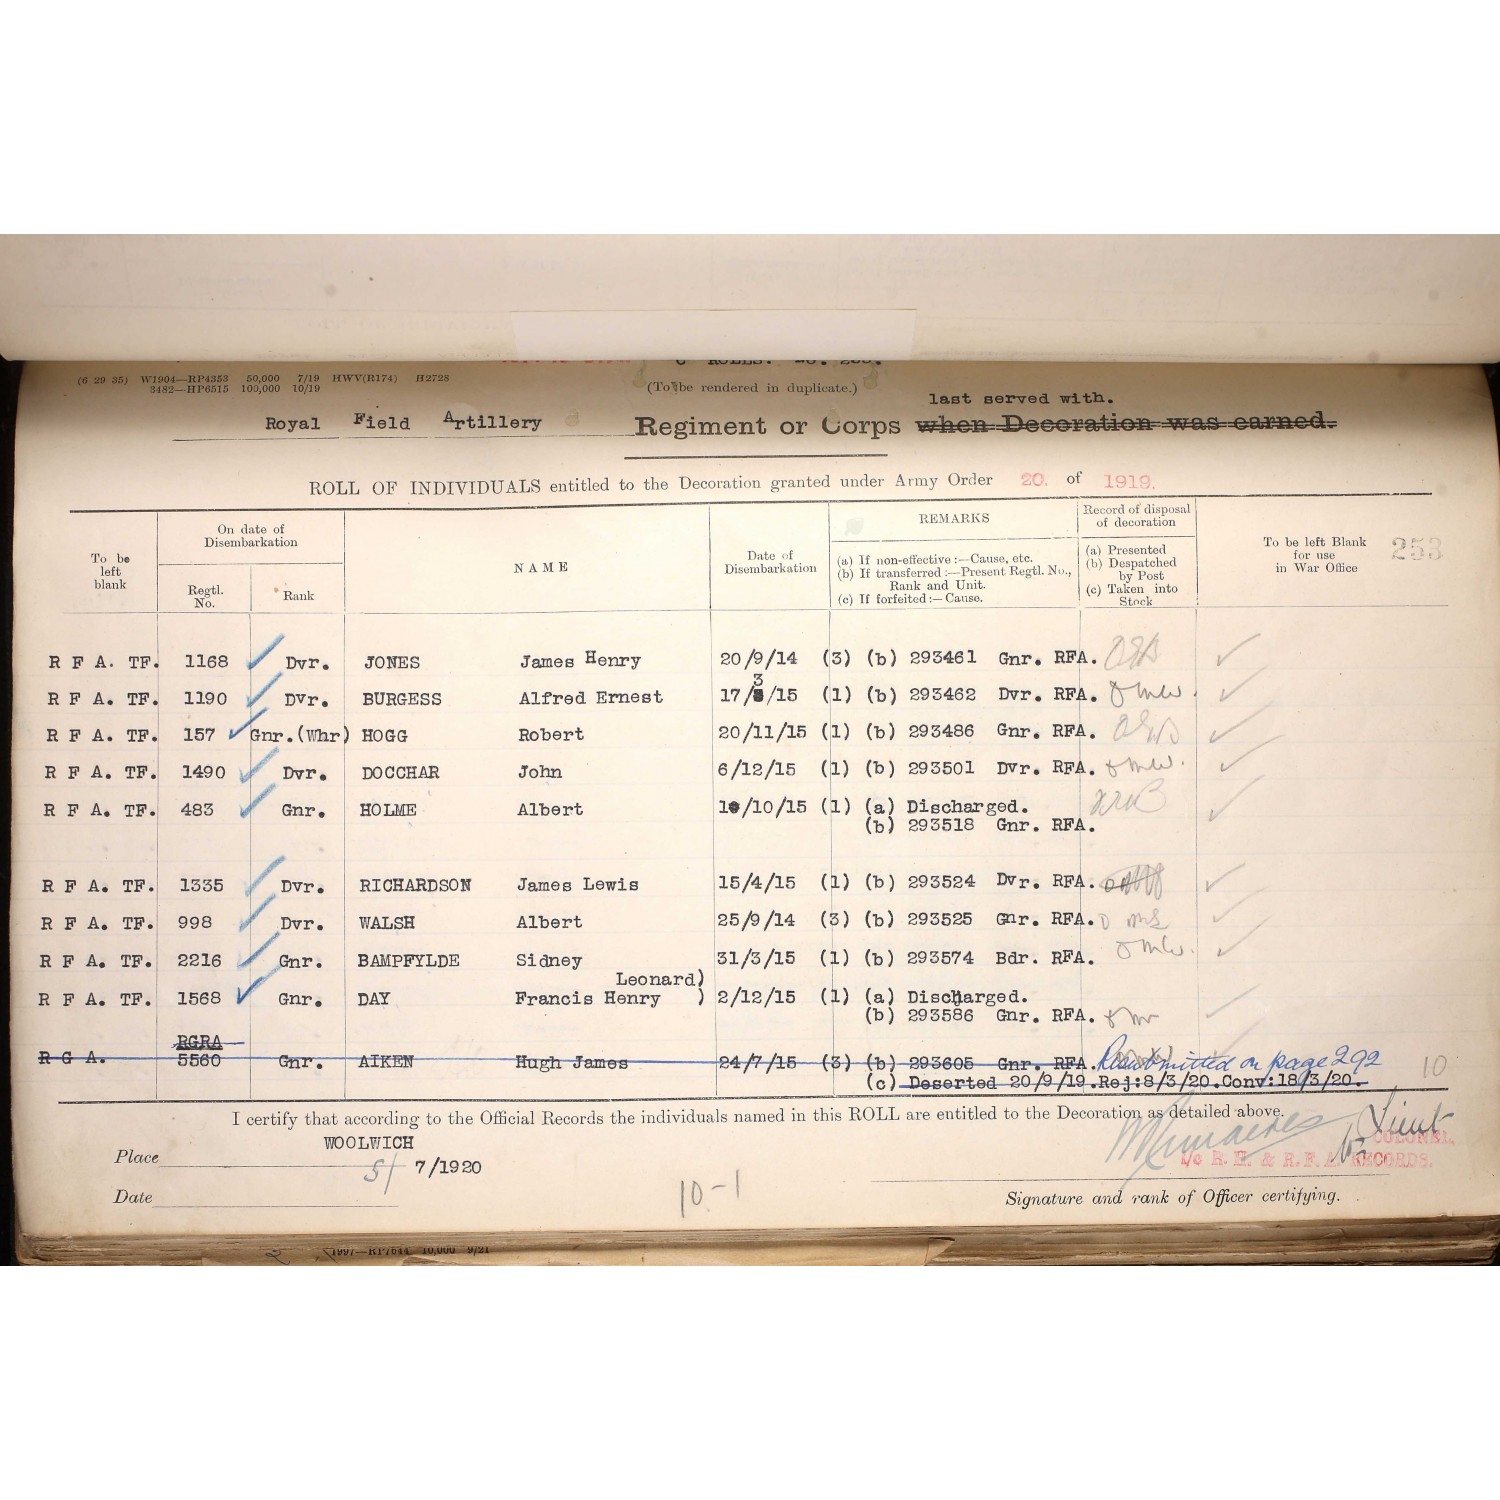 (6 29 35) W1904—RP4353 50,000 7/19 HWV(R174) H2728
3482—HP6515 100,000 10/19
(To be rendered in duplicate.)
last served with.
Royal Field Artillery Regiment or Corps when Decoration was earned.
ROLL OF INDIVIDUALS entitled to the Decoration granted under Army Order 20. of 1919.
To be left blank
On date of Disembarkation
Regtl. No.
Rank
NAME
Date of Disembarkation
REMARKS
(a) If non-effective :—Cause, etc.
(b) If transferred :—Present Regtl. No., Rank and Unit.
(c) If forfeited :—Cause.
Record of disposal of decoration
(a) Presented
(b) Despatched by Post
(c) Taken into Stock
To be left Blank for use in War Office
253
R F A. TF. 1168 Dvr. JONES James Henry 20/9/14 (3) (b) 293461 Gnr. RFA.
3
R F A. TF. 1190 Dvr. BURGESS Alfred Ernest 17/8/15 (1) (b) 293462 Dvr. RFA.
R F A. TF. 157 Gnr.(Whr) HOGG Robert 20/11/15 (1) (b) 293486 Gnr. RFA.
R F A. TF. 1490 Dvr. DOCCHAR John 6/12/15 (1) (b) 293501 Dvr. RFA.
R F A. TF. 483 Gnr. HOLME Albert /10/15 (1) (a) Discharged.
(b) 293518 Gnr. RFA.
R F A. TF. 1335 Dvr. RICHARDSON James Lewis 15/4/15 (1) (b) 293524 Dvr. RFA.
R F A. TF. 998 Dvr. WALSH Albert 25/9/14 (3) (b) 293525 Gnr. RFA.
R F A. TF. 2216 Gnr. BAMPFYLDE Sidney 31/3/15 (1) (b) 293574 Bdr. RFA.
Leonard)
R F A. TF. 1568 Gnr. DAY Francis Henry ) 2/12/15 (1) (a) Discharged.
(b) 293586 Gnr. RFA.
RGRA
R G A. 5560 Gnr. AIKEN Hugh James 24/7/15 (3) (b) 293605 Gnr. RFA. Resubmitted on page 292 10
(c) Deserted 20/9/19.Rej:8/3/20.Conv:18/3/20.
I certify that according to the Official Records the individuals named in this ROLL are entitled to the Decoration as detailed above.
Place WOOLWICH
5/ 7/1920
Lieut
for COLONEL,
i/c R.H. & R.F.A. RECORDS.
Date
10-1
Signature and rank of Officer certifying.
1907—RP7644 10,000 9/21